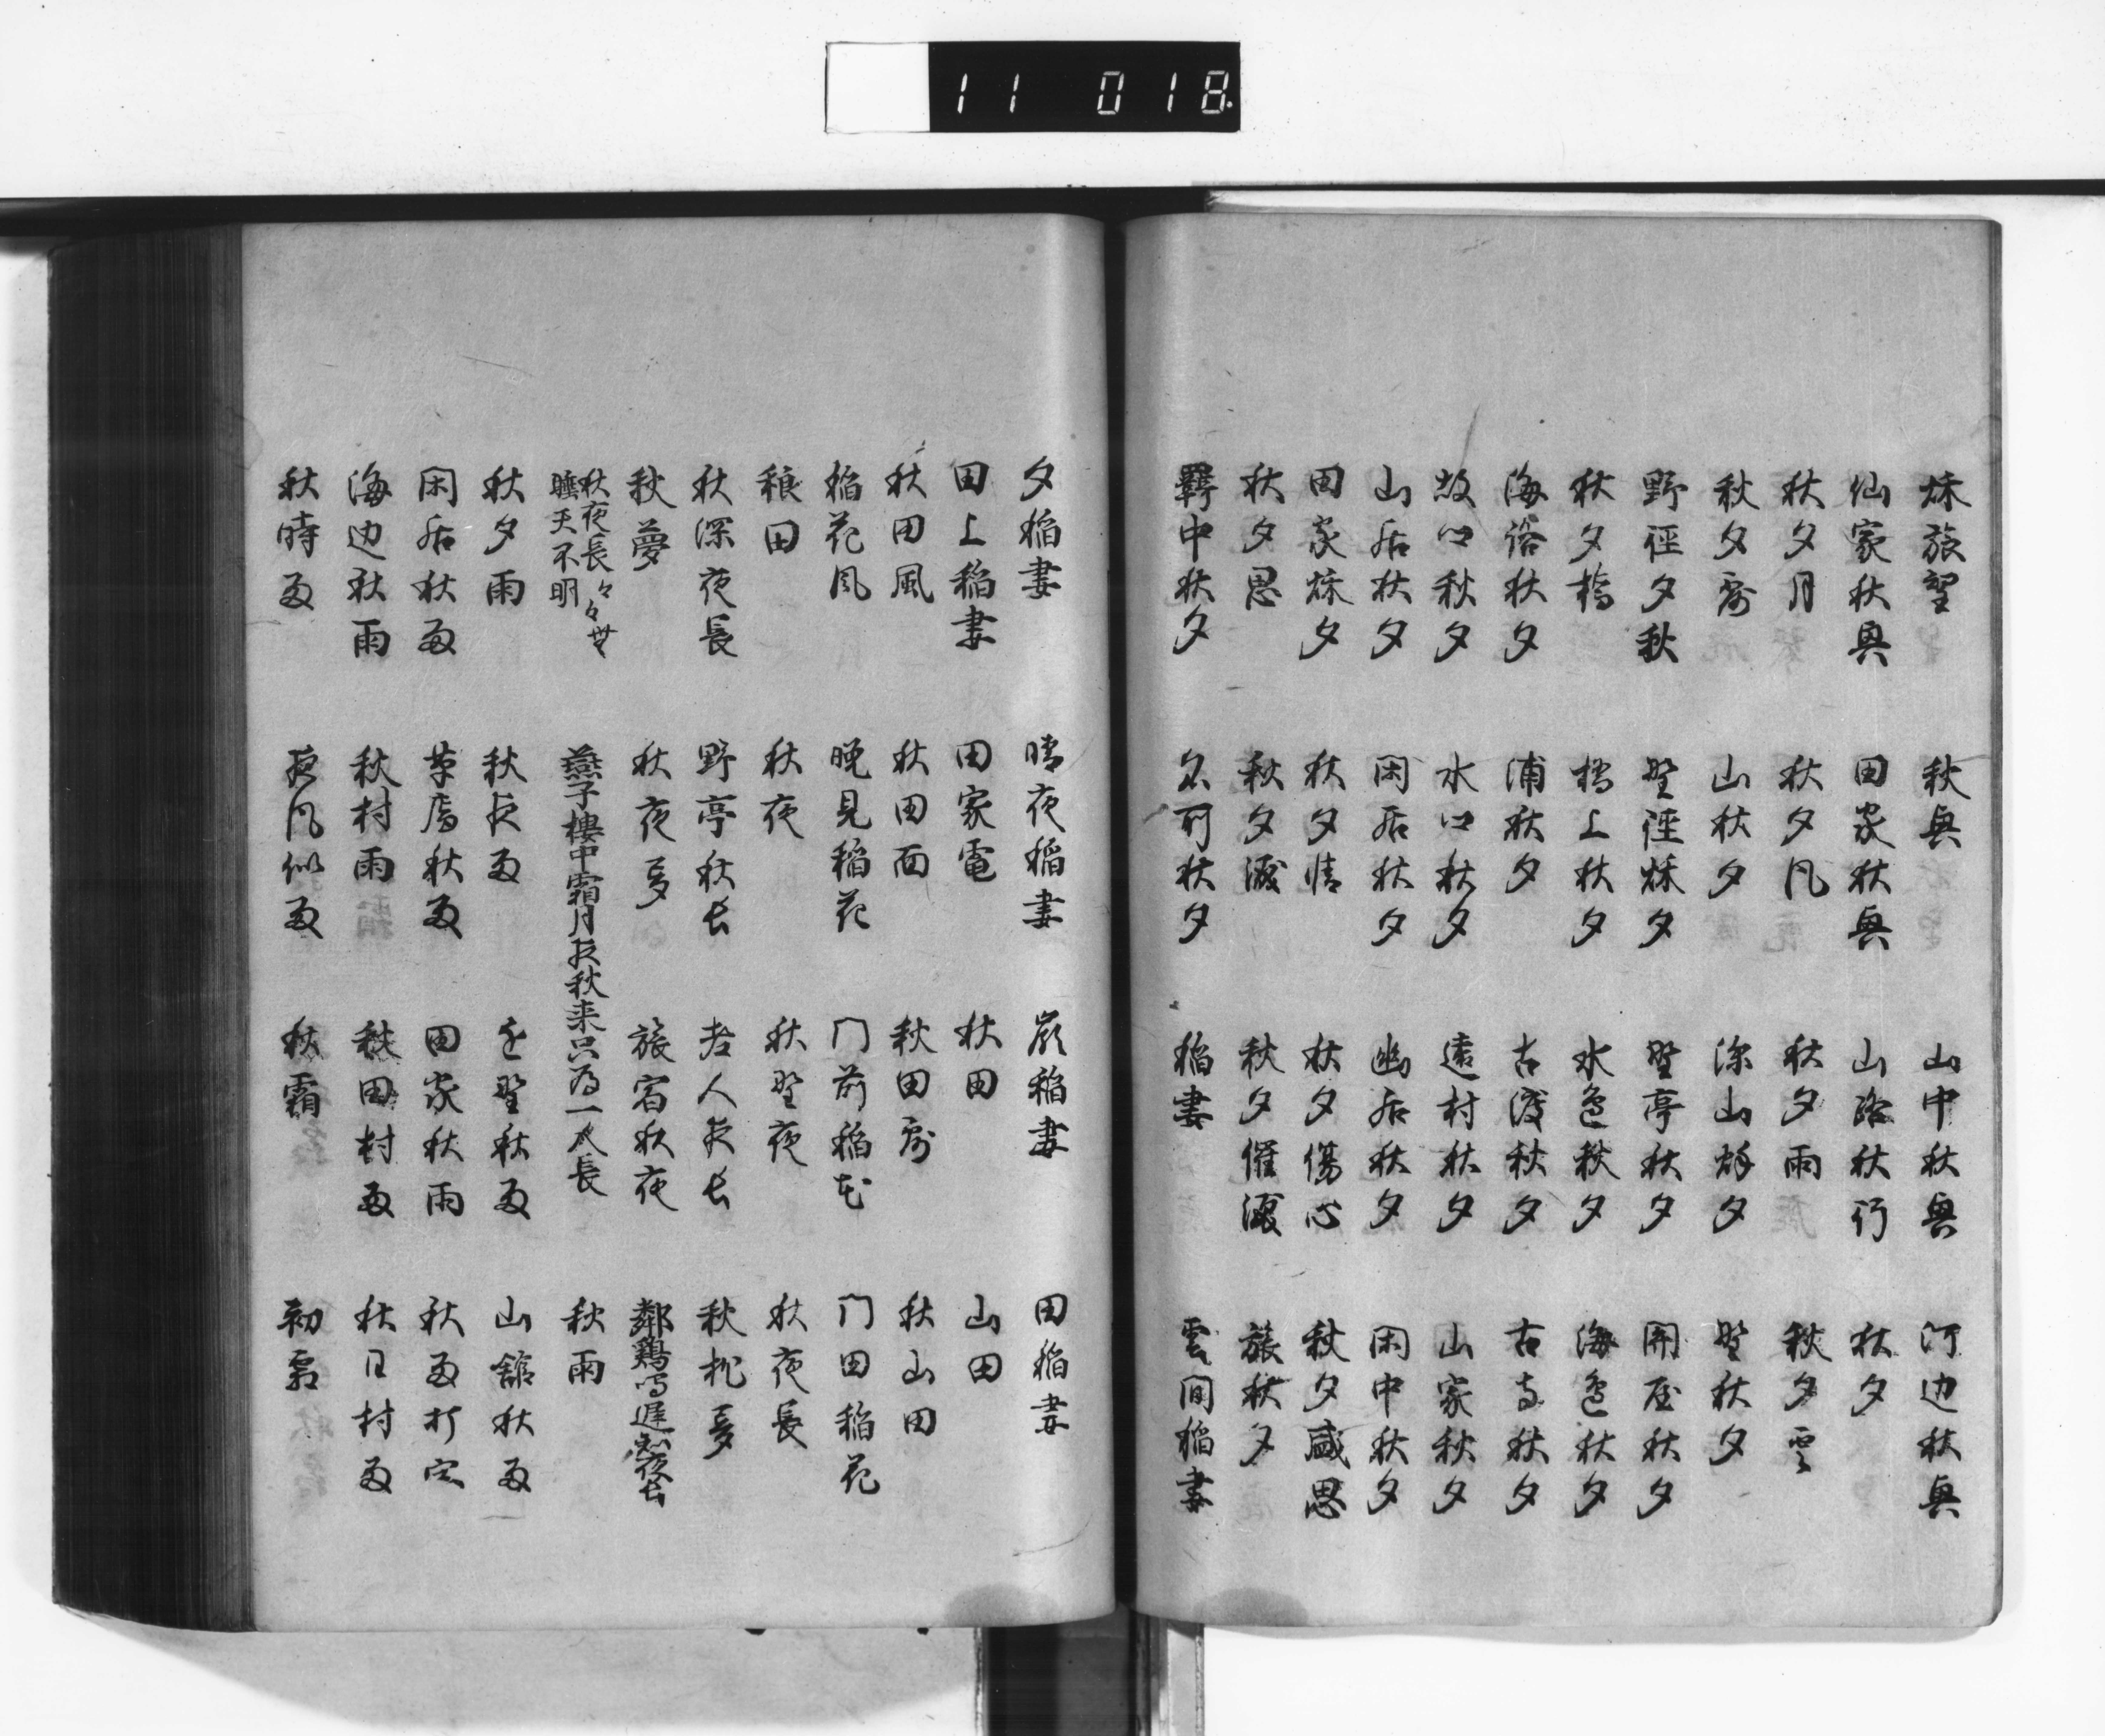 11 018
秌旅望 秋興 山中秋興 河辺秋興
仙家秋興 田家秋興 山路秋行 秋夕
秋夕月 秋夕風 秋夕雨 秋夕雲
秋夕露 山秋夕 深山秋夕 野秋夕
野徑夕秋 野徑秌夕 野亭秋夕 関屋秋夕
秋夕橋 橋上秋夕 水邊秋夕 海邊秋夕
海路秋夕 浦秋夕 古渡秋夕 古寺秋夕
故郷秋夕 水郷秋夕 遠村秋夕 山家秋夕
山居秋夕 閑居秋夕 幽居秋夕 閑中秋夕
田家秌夕 秋夕情 秋夕傷心 秋夕感思
秋夕思 秋夕涙 秋夕催涙 旅秋夕
羇中秋夕 名所秋夕 稲妻 雲間稲妻
夕稲妻 晴夜稲妻 嶺稲妻 田稲妻
田上稲妻 田家電 秋田 山田
秋田風 秋田面 秋田露 秋山田
稲花風 晩見稲花 門前稲花 門田稲花
穂田 秋夜 秋野夜 秋夜長
秋深夜長 野亭秋長 老人夜長 秋枕夢
秋夢 秋夜夢 旅宿秋夜 鄰鶏鳴遅知夜長
秋夜長々々無睡天不明 燕子樓中霜月夜秋来只為一人長 秋雨
秋夕雨 秋夜雨 遠野秋雨 山舘秋雨
閑居秋雨 草庵秋雨 田家秋雨 秋雨打窓
海辺秋雨 秋村雨 秋田村雨 秋日村雨
秋時雨 夜風似雨 秋霜 初霜